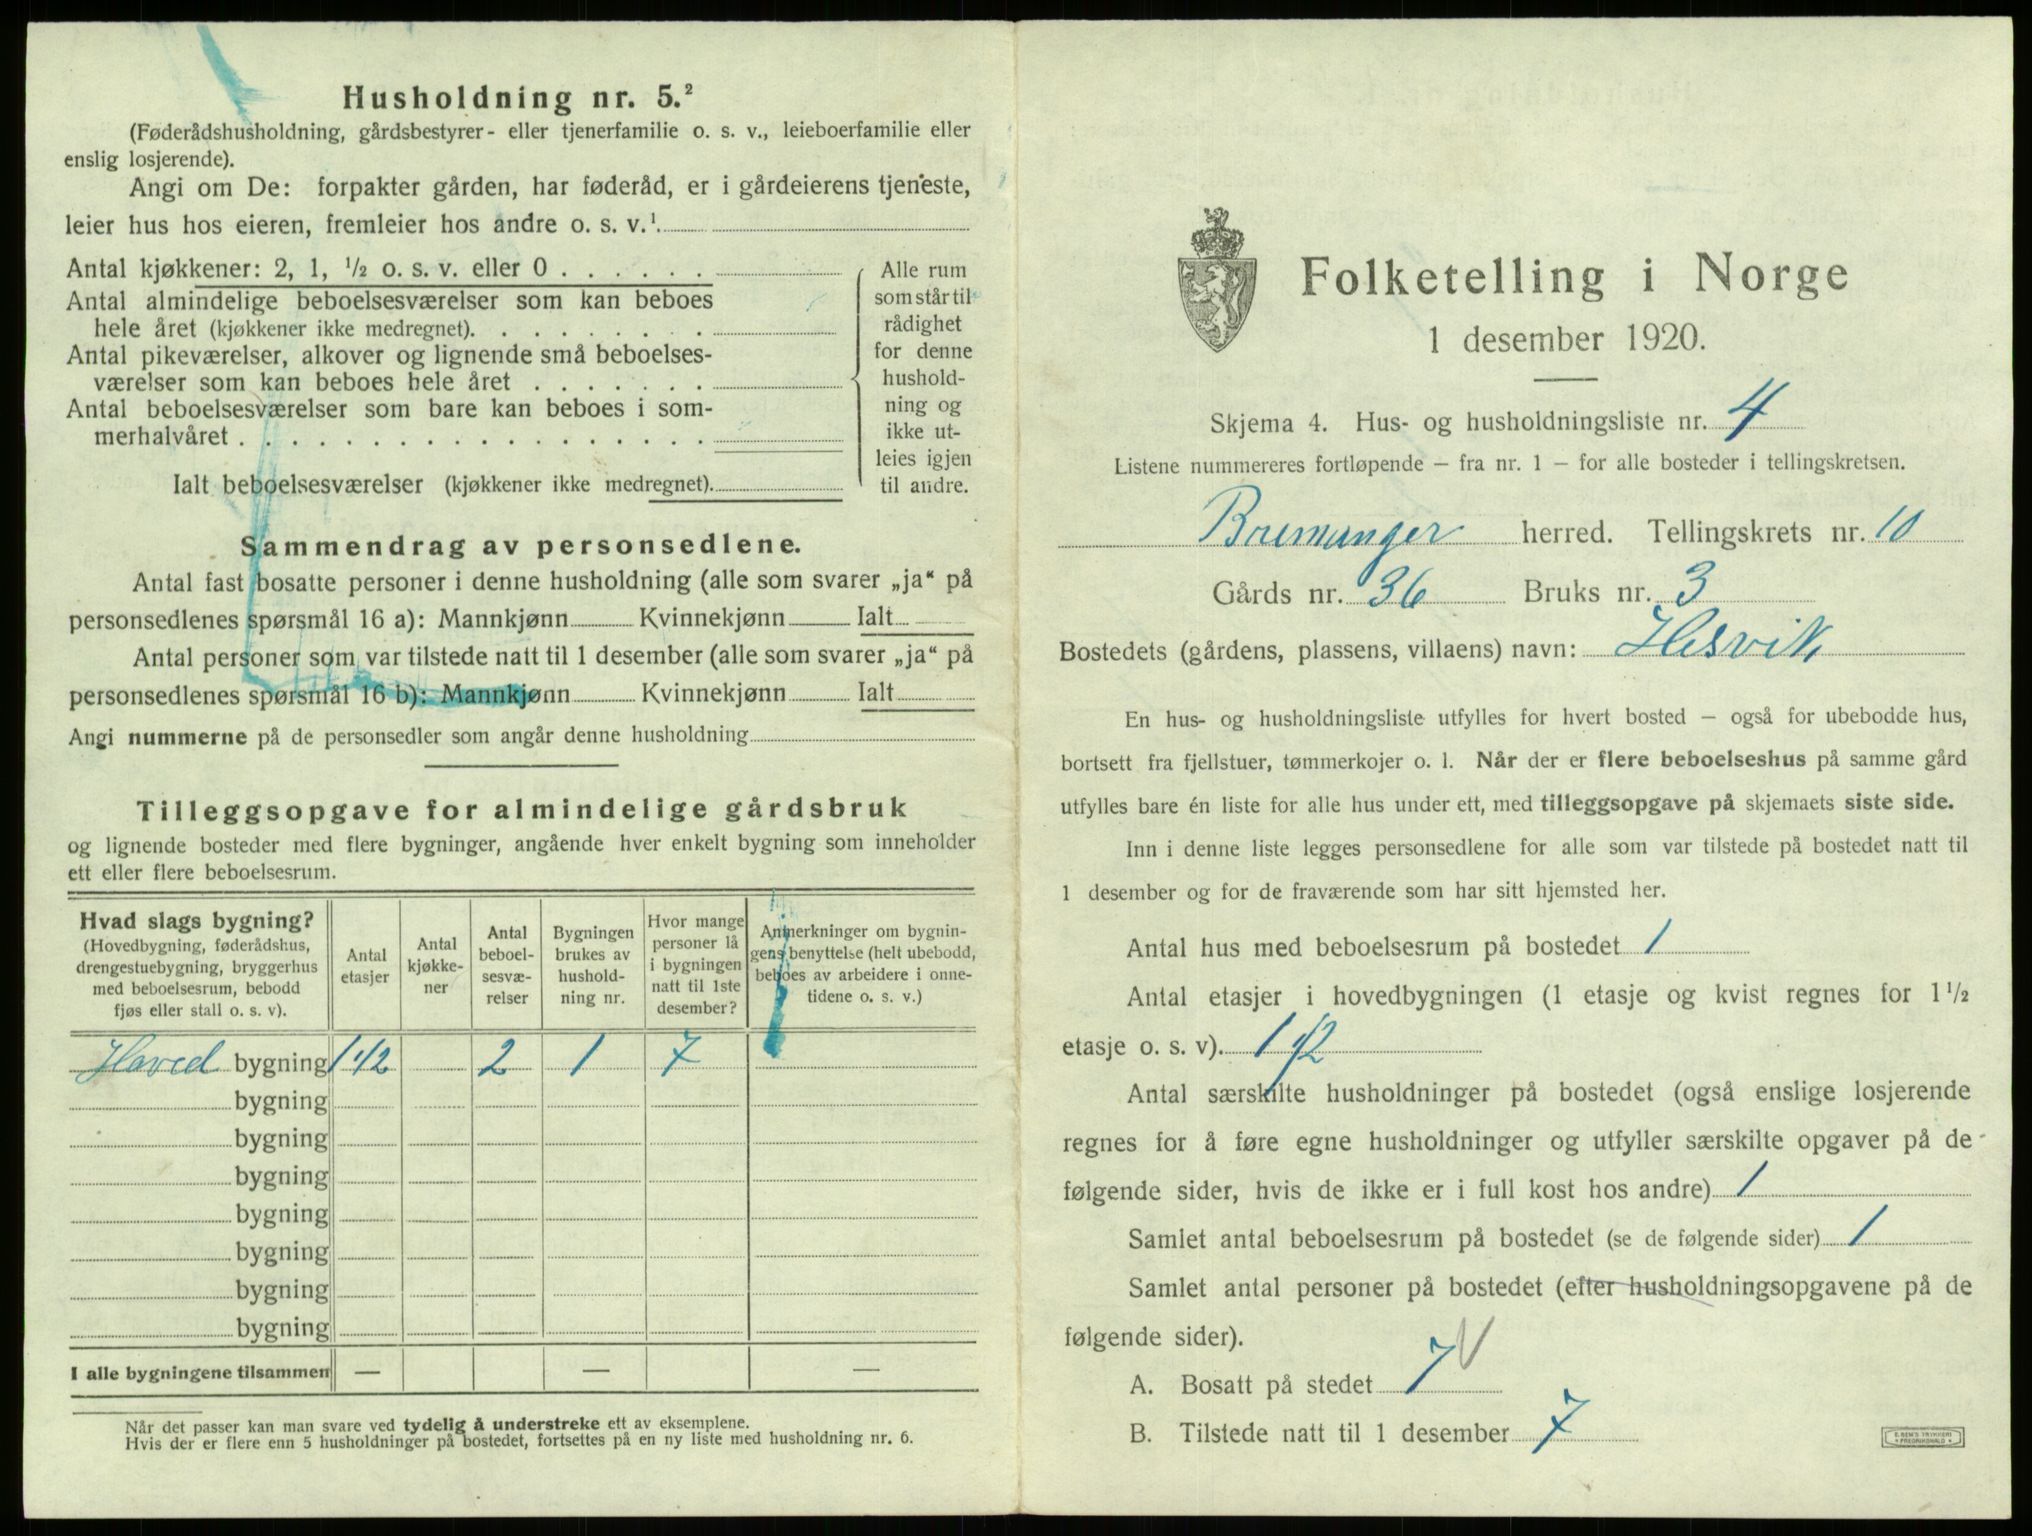 Husholdning nr. 5.²
(Føderådshusholdning, gårdsbestyrer- eller tjenerfamilie o. s. v., leieboerfamilie eller
enslig losjerende).
Angi om De: forpakter gården, har føderåd, er i gårdeierens tjeneste,
leier hus hos eieren, fremleier hos andre o. s. v.¹
Antal kjøkkener: 2, 1, ½ o. s. v. eller 0 . . . . . .
Antal almindelige beboelsesværelser som kan beboes
hele året (kjøkkener ikke medregnet). . . . . . . . .
Antal pikeværelser, alkover og lignende små beboelses-
værelser som kan beboes hele året . . . . . . .
Antal beboelsesværelser som bare kan beboes i som-
merhalvåret . . . . . . . . . . . . . . . . . .
Ialt beboelsesværelser (kjøkkener ikke medregnet).
Alle rum
som står til
rådighet
for denne
hushold-
ning og
ikke ut-
leies igjen
til andre.
Sammendrag av personsedlene.
Antal fast bosatte personer i denne husholdning (alle som svarer „ja“ på
personsedlenes spørsmål 16 a): Mannkjønn Kvinnekjønn Ialt
Antal personer som var tilstede natt til 1 desember (alle som svarer „ja“ på
personsedlenes spørsmål 16 b): Mannkjønn Kvinnekjønn Ialt
Angi nummerne på de personsedler som angår denne husholdning
Tilleggsopgave for almindelige gårdsbruk
og lignende bosteder med flere bygninger, angående hver enkelt bygning som inneholder
ett eller flere beboelsesrum.
Hvad slags bygning?
(Hovedbygning, føderådshus,
drengestuebygning, bryggerhus
med beboelsesrum, bebodd
fjøs eller stall o. s. v).
Antal
etasjer
Antal
kjøkke-
ner
Antal
beboel-
sesvæ-
relser
Bygningen
brukes av
hushold-
ning nr.
Hvor mange
personer lå
i bygningen
natt til 1ste
desember?
Anmerkninger om bygnin-
gens benyttelse (helt ubebodd,
beboes av arbeidere i onne-
tidene o. s. v.)
Hoved bygning 1 1/2 2 1 7
bygning
bygning
bygning
bygning
bygning
bygning
bygning
I alle bygningene tilsammen — — —
Når det passer kan man svare ved tydelig å understreke ett av eksemplene.
Hvis der er flere enn 5 husholdninger på bostedet, fortsettes på en ny liste med husholdning nr. 6.
Folketelling i Norge
1 desember 1920.
Skjema 4. Hus- og husholdningsliste nr. 4
Listene nummereres fortløpende – fra nr. 1 – for alle bosteder i tellingskretsen.
Bremanger herred. Tellingskrets nr. 10
Gårds nr. 36 Bruks nr. 3
Bostedets (gårdens, plassens, villaens) navn: Hesvik
En hus- og husholdningsliste utfylles for hvert bosted – også for ubebodde hus,
bortsett fra fjellstuer, tømmerkojer o. l. Når der er flere beboelseshus på samme gård
utfylles bare én liste for alle hus under ett, med tilleggsopgave på skjemaets siste side.
Inn i denne liste legges personsedlene for alle som var tilstede på bostedet natt til
1 desember og for de fraværende som har sitt hjemsted her.
Antal hus med beboelsesrum på bostedet 1
Antal etasjer i hovedbygningen (1 etasje og kvist regnes for 1½
etasje o. s. v). 1 1/2
Antal særskilte husholdninger på bostedet (også enslige losjerende
regnes for å føre egne husholdninger og utfyller særskilte opgaver på de
følgende sider, hvis de ikke er i full kost hos andre) 1
Samlet antal beboelsesrum på bostedet (se de følgende sider) 1
Samlet antal personer på bostedet (efter husholdningsopgavene på de
følgende sider).
A. Bosatt på stedet 7 V
B. Tilstede natt til 1 desember 7
E. SEM'S TRYKKERI
FREDRIKSHALD